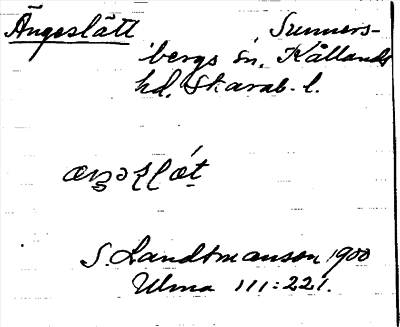 Ängeslätt Sunners-
bergs sn, Kållands
hd, Skarab. l.
S. Landtmanson 1900
Ulma 111:221.